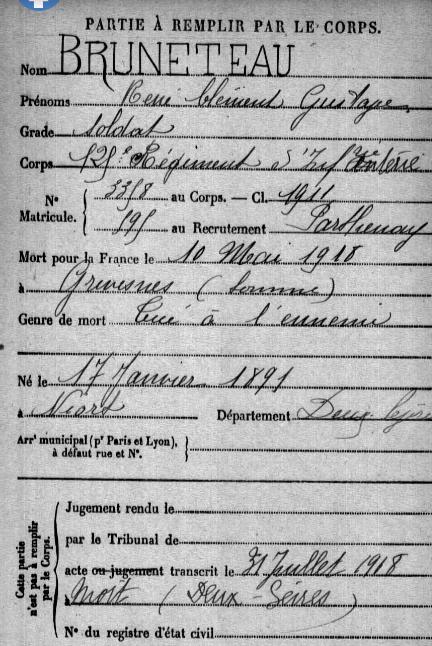 PARTIE À REMPLIR PAR LE CORPS.
Nom BRUNETEAU
Prénoms René Clément Gustave
Grade soldat
Corps 125e Régiment d'Infanterie
No Matricule. { 3358 au Corps. — Cl. 1911
195 au Recrutement Parthenay
Mort pour la France le 10 Mai 1918
à Grivesnes (Somme)
Genre de mort Tué à l'ennemi
Né le 17 Janvier 1891
à Niort Département Deux-Sèvres
Arrt municipal (pr Paris et Lyon), à défaut rue et No. }
Cette partie n'est pas à remplir par le Corps. {
Jugement rendu le
par le Tribunal de
acte ou jugement transcrit le 31 Juillet 1918
à Niort (Deux-Sèvres)
No du registre d'état civil